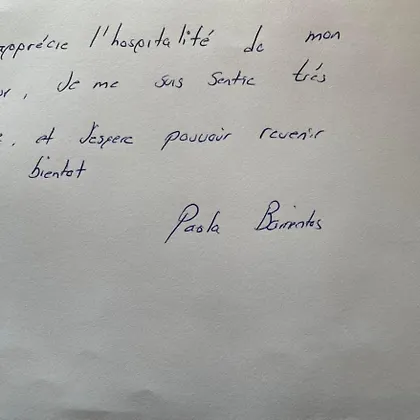 apprécie l'hospitalité de mon
, Je me suis sentie très
, et j'espere pouvoir revenir
bientot
Paola Barrientos